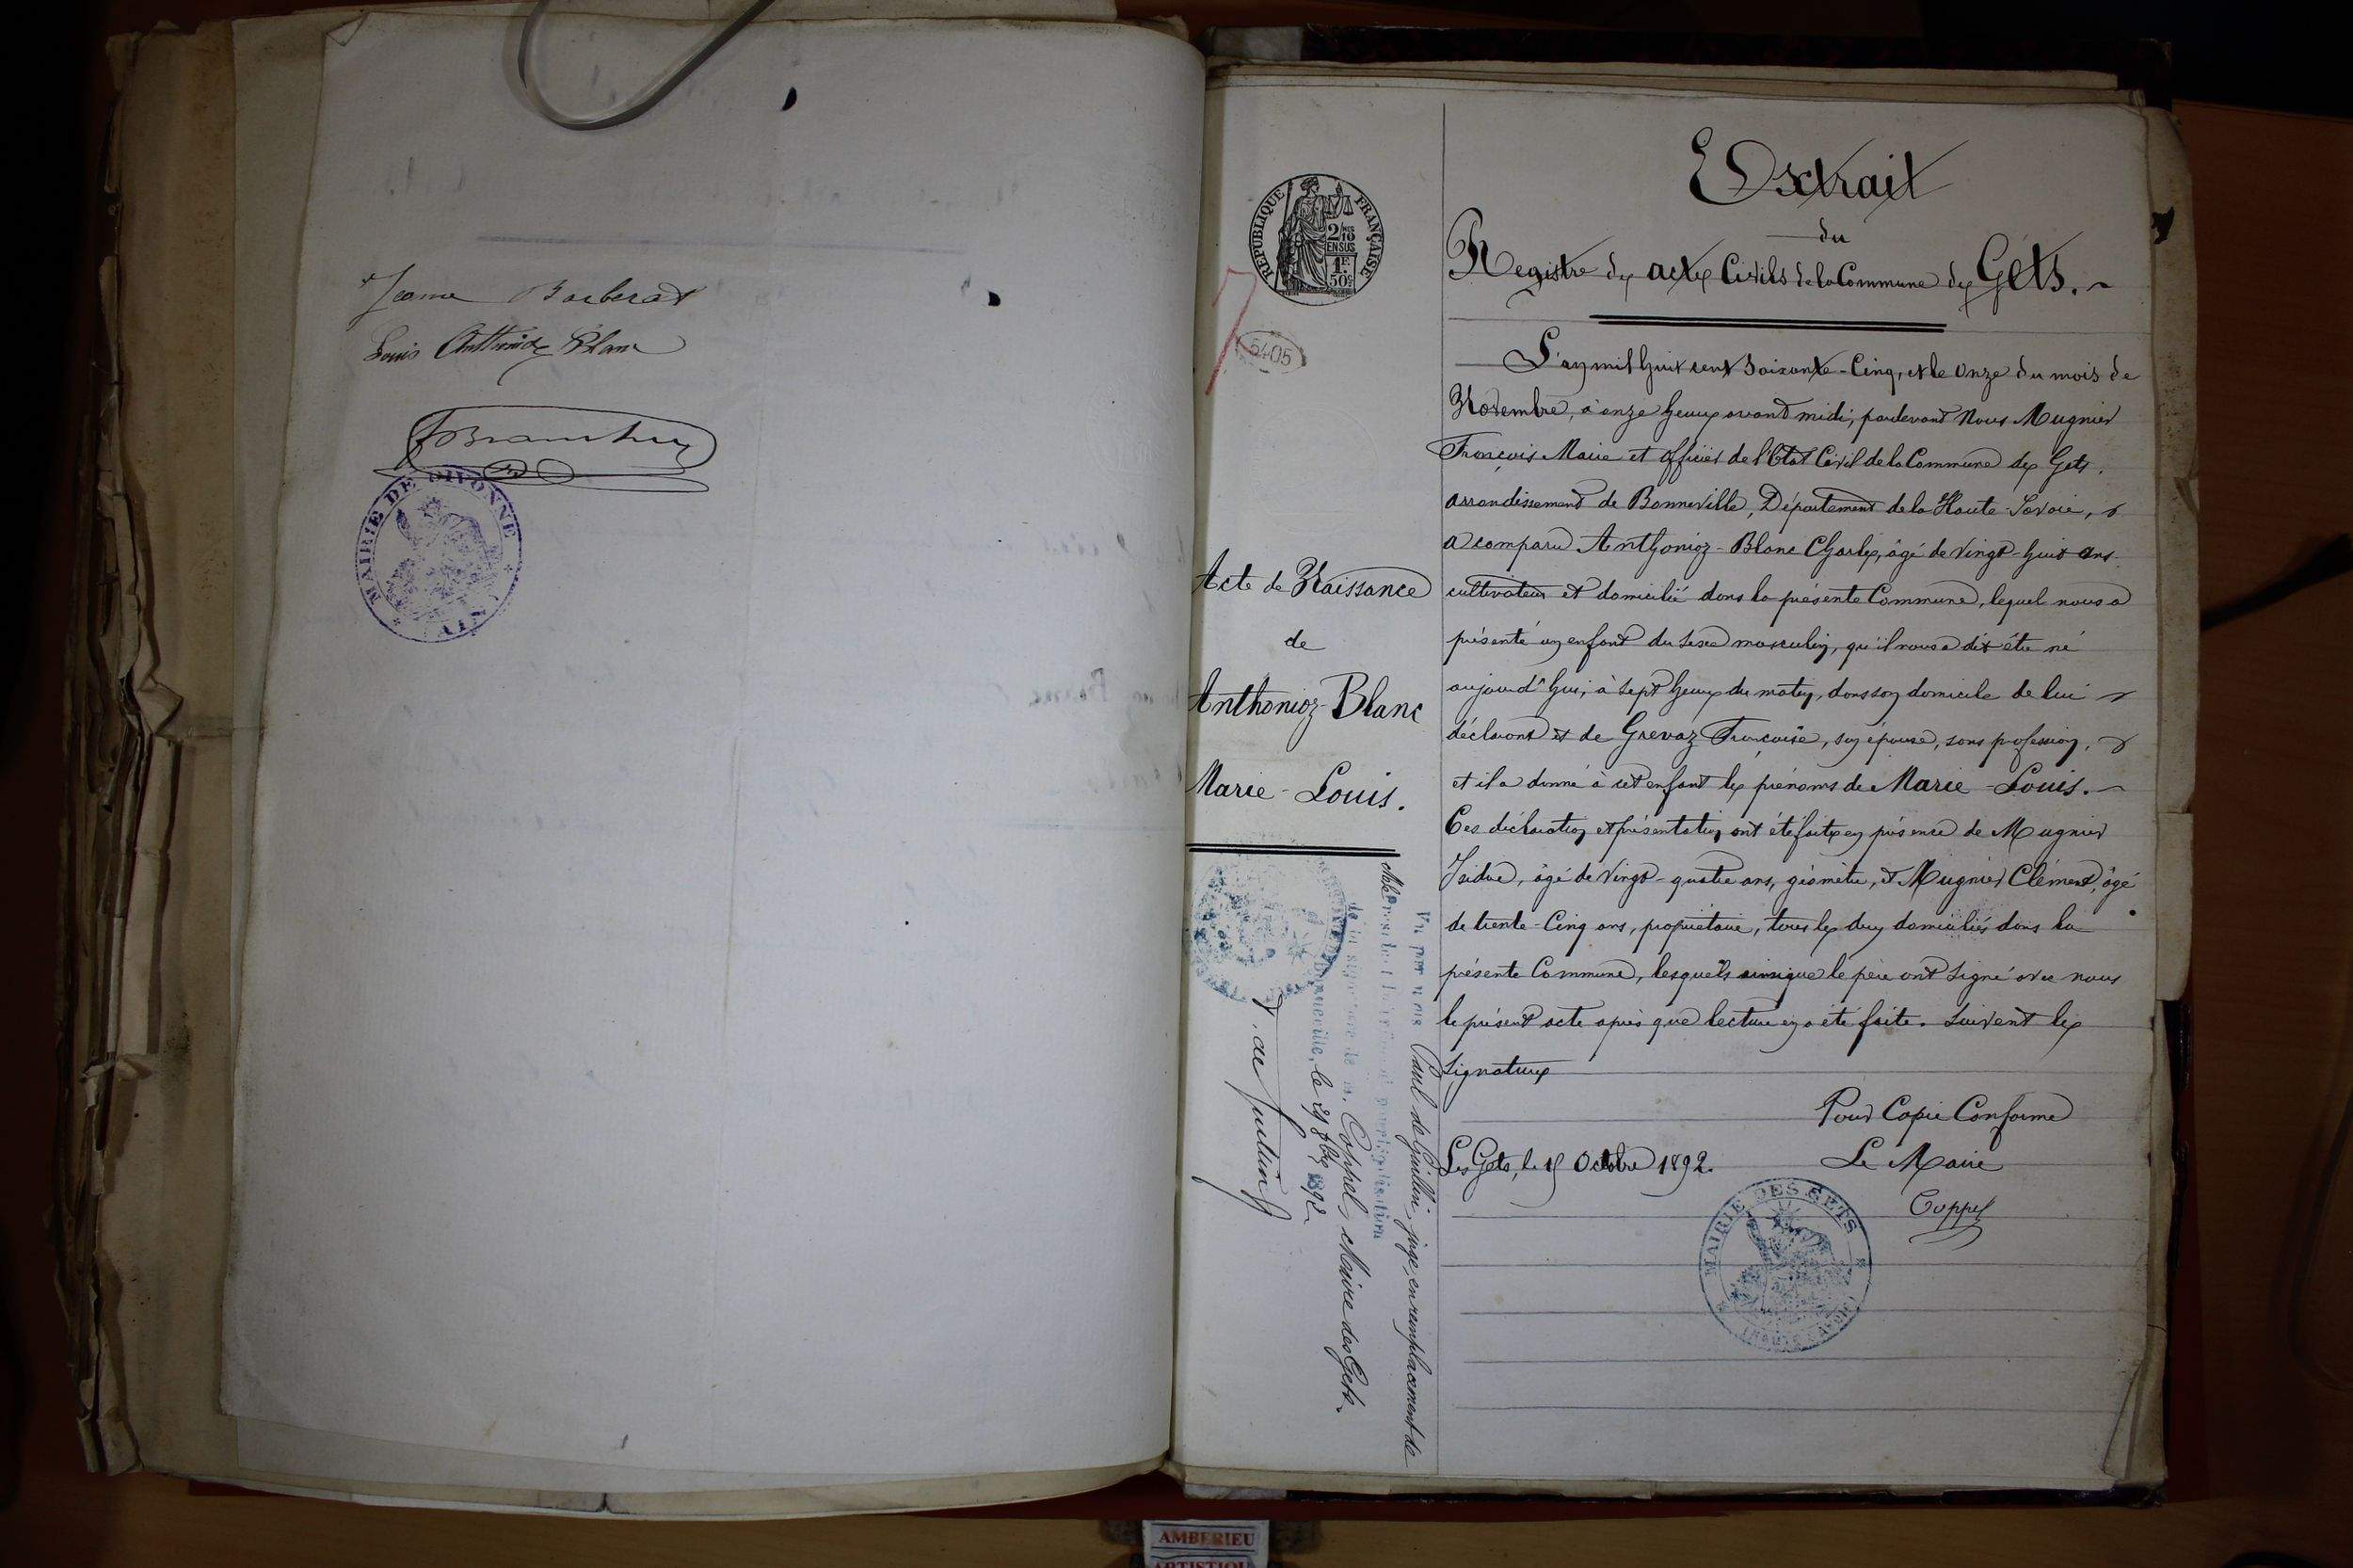 Jeanne Barberat
Louis Anthonioz Blanc
MAIRIE DE DIVONNE
RÉPUBLIQUE FRANÇAISE
2/10
EN SUS
1F
50c
5405
Extrait
du
Registre des actes Civils de la Commune des Gets.
L'an mil huit cent soixante-Cinq, et le onze du mois de
Novembre, à onze heures avant midi, pardevant Nous Mugnier
François Maire et officier de l'Etat Civil de la Commune des Gets,
arrondissement de Bonneville, Département de la Haute-Savoie,
a comparu Anthonioz-Blanc Charles, âgé de vingt-huit ans,
cultivateur et domicilié dans la présente Commune, lequel nous a
présenté un enfant du sexe masculin, qu'il nous a dit être né
aujourd'hui, à sept heures du matin, dans son domicile de lui
déclarant et de Grevaz Françoise, son épouse, sans profession,
et il a donné à cet enfant les prénoms de Marie-Louis.
Ces déclaration et présentation ont été faites en présence de Mugnier
Isidore, âgé de vingt-quatre ans, géomètre, et Mugnier Clément, âgé
de trente-Cinq ans, propriétaire, tous les deux domiciliés dans la
présente Commune, lesquels ainsi que le père ont signé avec nous
le présent acte après que lecture en a été faite. Suivent les
signatures
Pour Copie Conforme
Les Gets, le 15 Octobre 1892.
Le Maire
Coppel
MAIRIE DES GETS
(HAUTE SAVOIE)
Acte de Naissance
de
Anthonioz-Blanc
Marie-Louis.
Vu par nous Paul de juge, en remplacement de
de la signature de M. Coppel, Maire des Gets.
Bonneville, le 21 8bre 1892